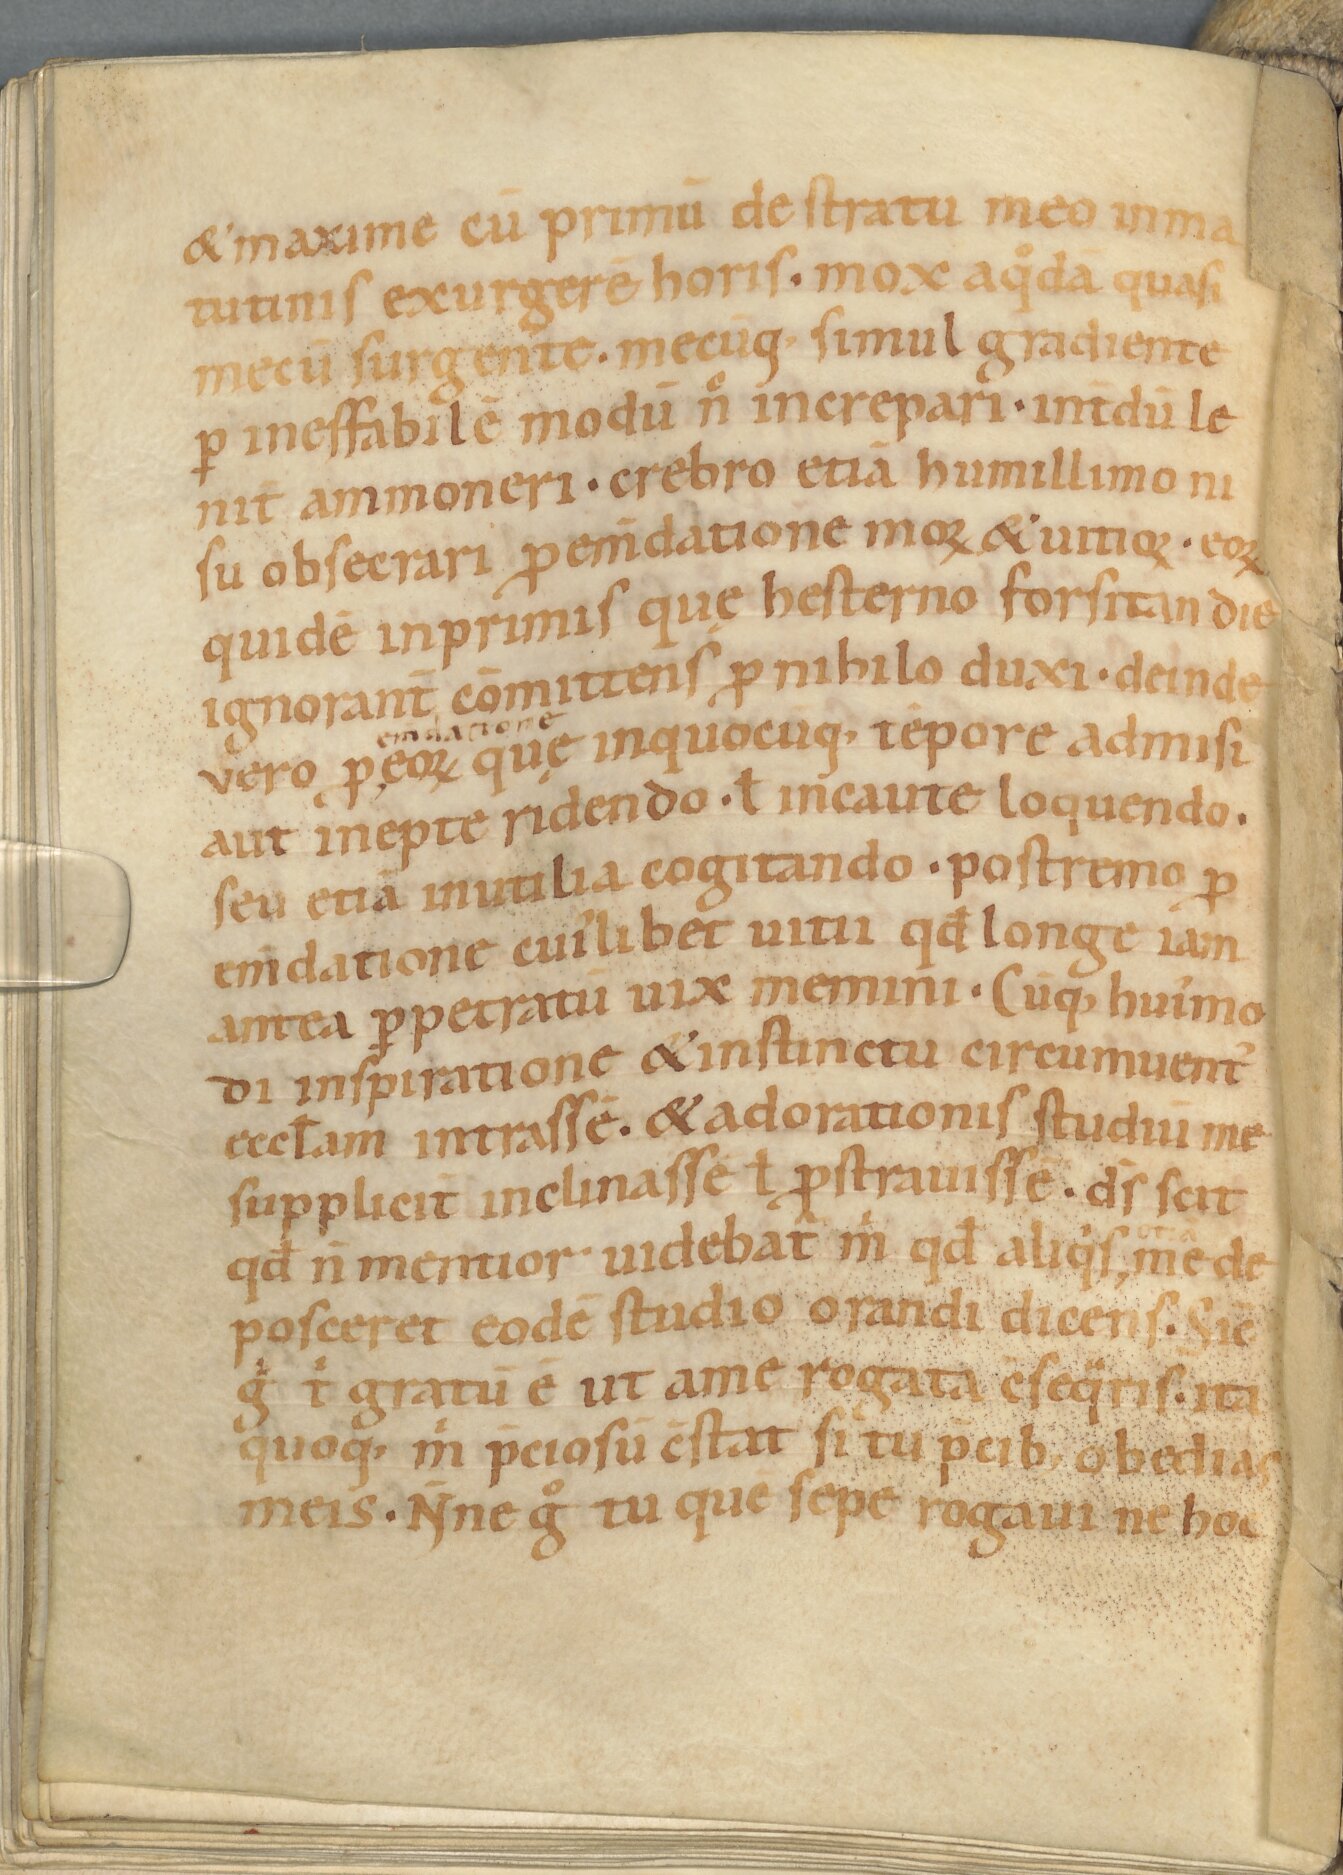 & maxime cū primū de stratu meo inma
tutinis exurgerē horis. mox aqͦdā quasi
mecū surgente. mecūq; simul gradiente
ꝑ ineffabilē modū nͦ increpari. int̄dū le
nit̄ ammoneri. crebro etiā humillimo ni
su obsecrari ꝓ em̄datione moꝝ & uitioꝝ. eoꝝ
quidē inprimis quę hesterno forsitan die
ignorant̄ cōmittens ꝓ nihilo duxi. deinde
emdatione
vero ꝓ, eoꝝ quę inquocūq; tēpore admisi
aut inepte ridendo. ł incaute loquendo.
seu etiā inutilia cogitando. postremo ꝓ
em̄datione cui'libet uitii qđ longe iam
antea ꝑpetratū uix memini. Cūq; hui'mo
di inspiratione & instinctu circumuent'
eccłam intrassē. & adorationis studiū me
supplicit̄ inclinassē ł ꝓstrauissē. ds̄ scit
otiā
qđ n̄ mentior. uidebat̄ mͥ qđ aliqͥs, me de
posceret eodē studio orandi dicens. Sic̄
gͥ tͥ gratū ē ut ame rogata c̄seqͣris. ita
quoq; mͥ p̄ciosū c̄stat si tu p̄cib; obedias
meis. N̄ne gͦ tu quē sepe rogaui ne hoc